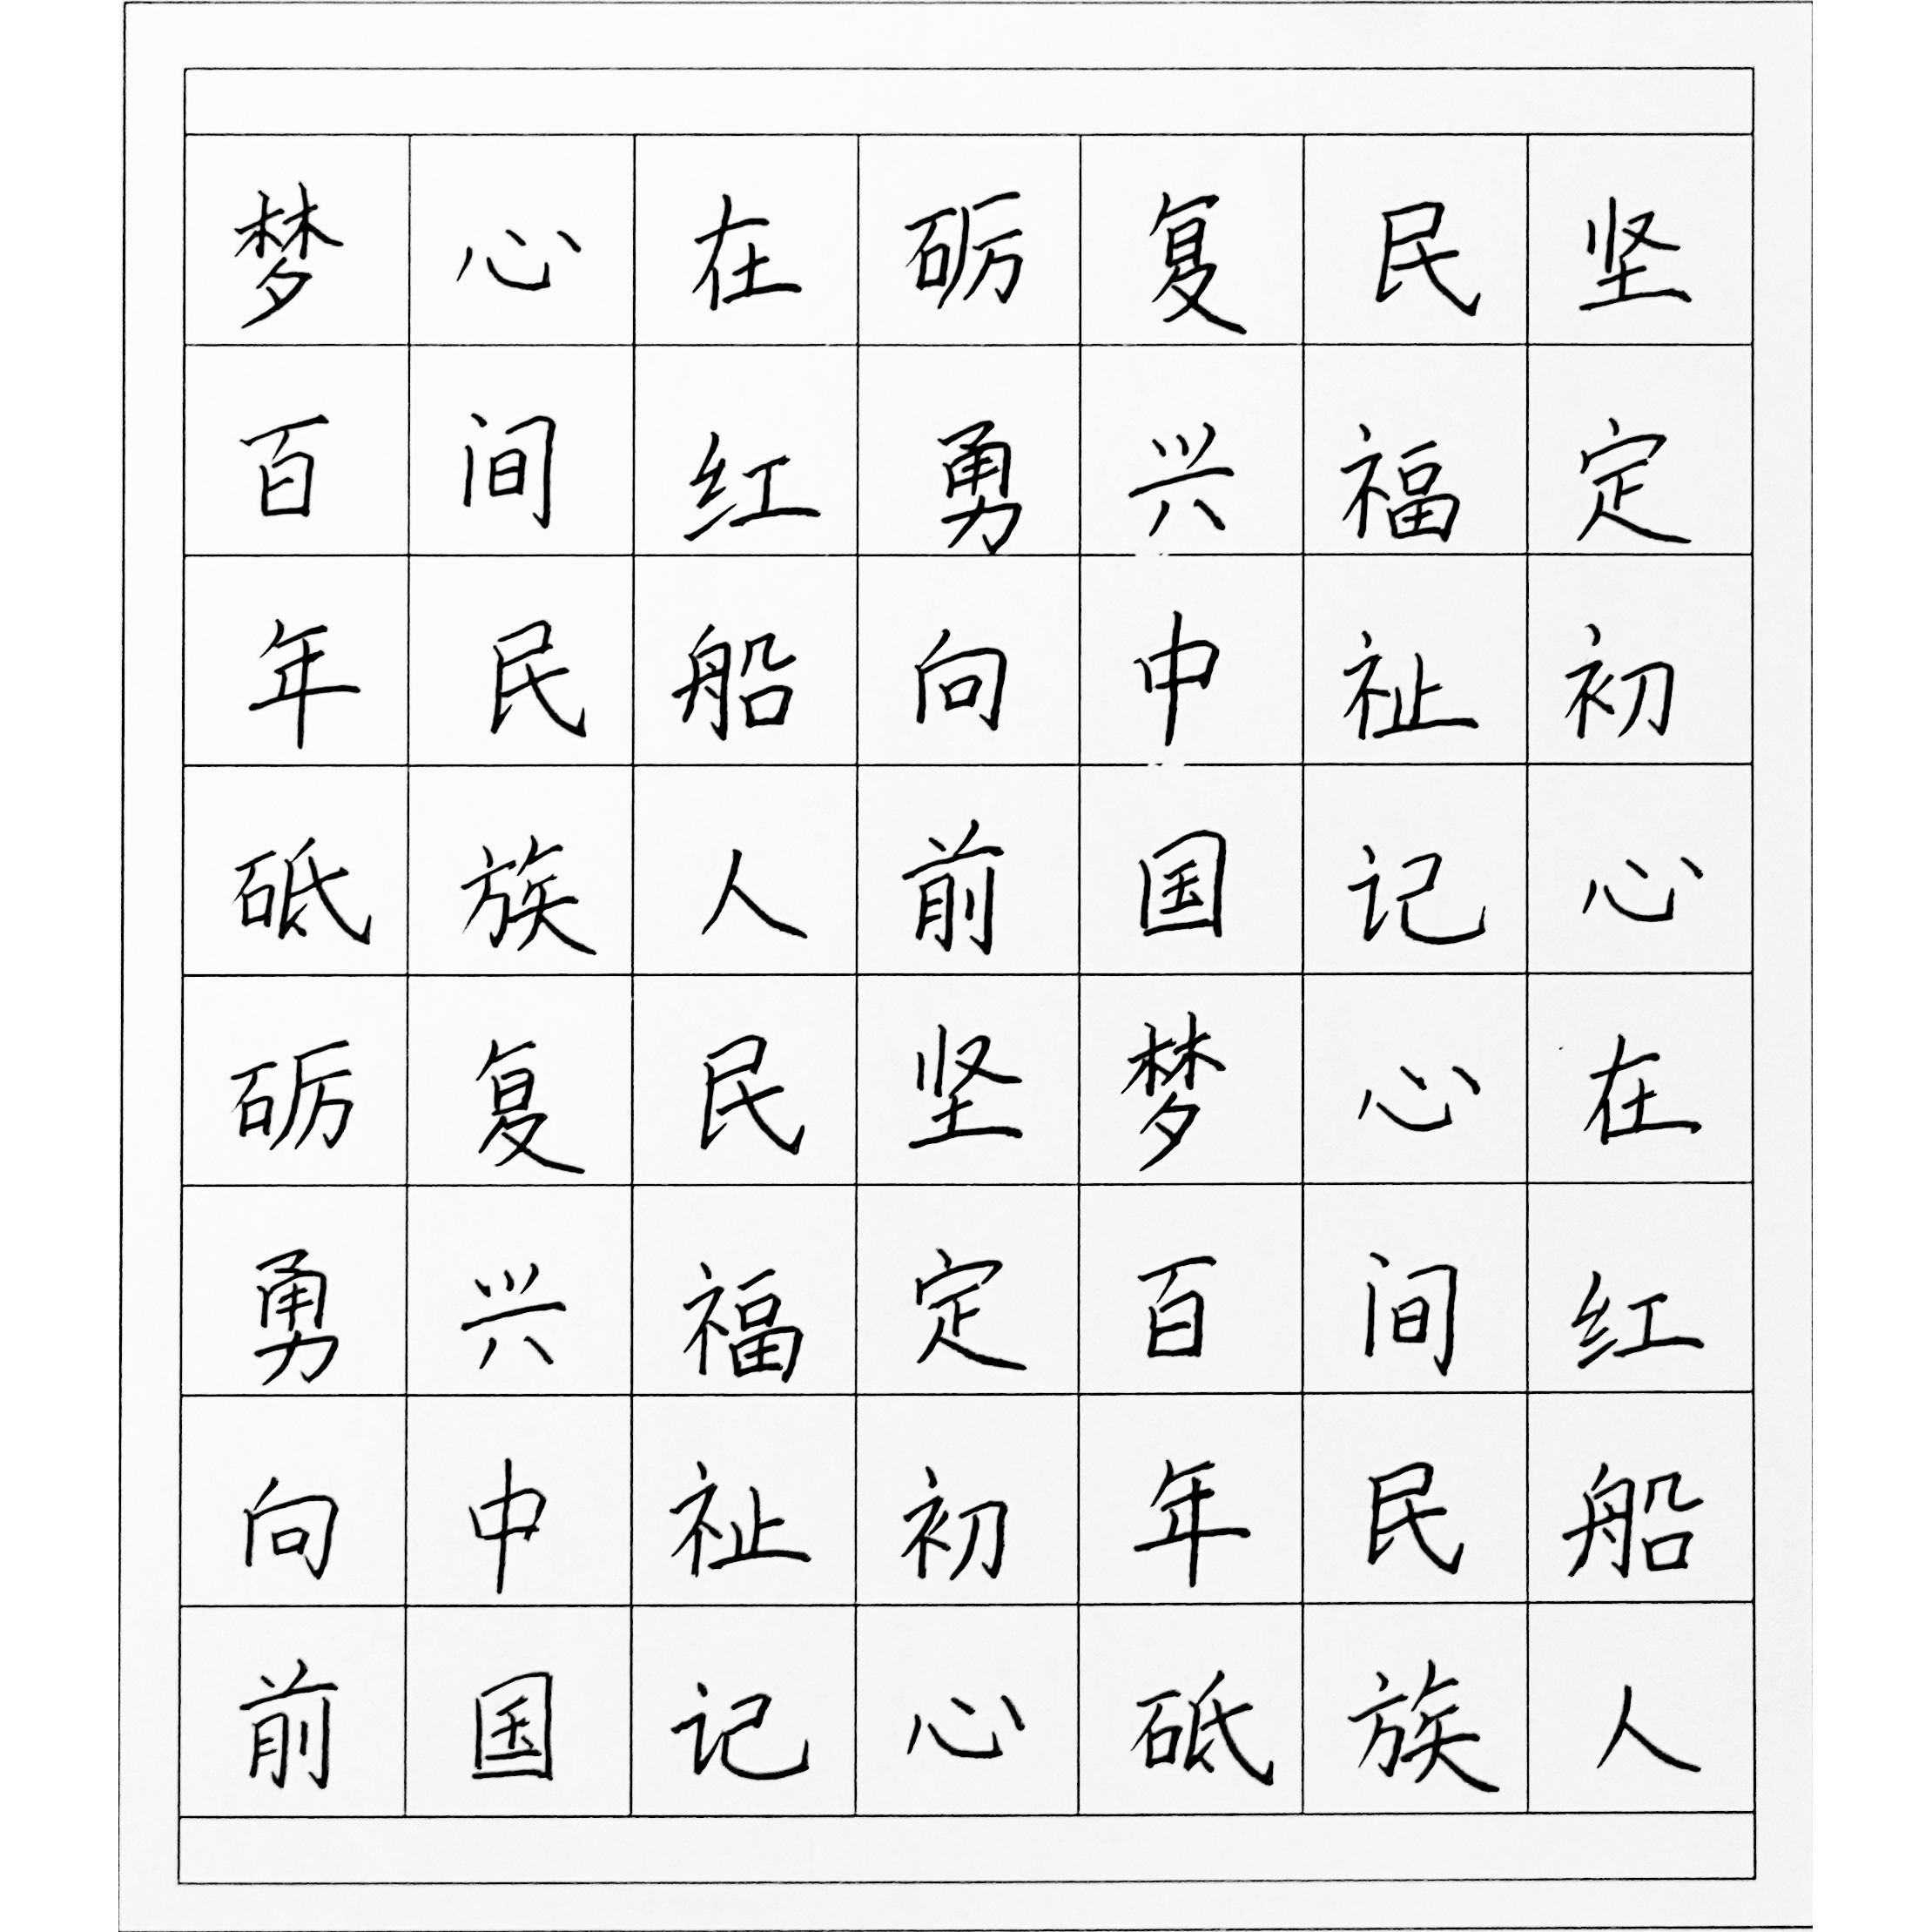 坚定初心在红船人
民福祉记心间民族
复兴中国梦百年砥
砺勇向前坚定初心
在红船人民福祉记
心间民族复兴中国
梦百年砥砺勇向前